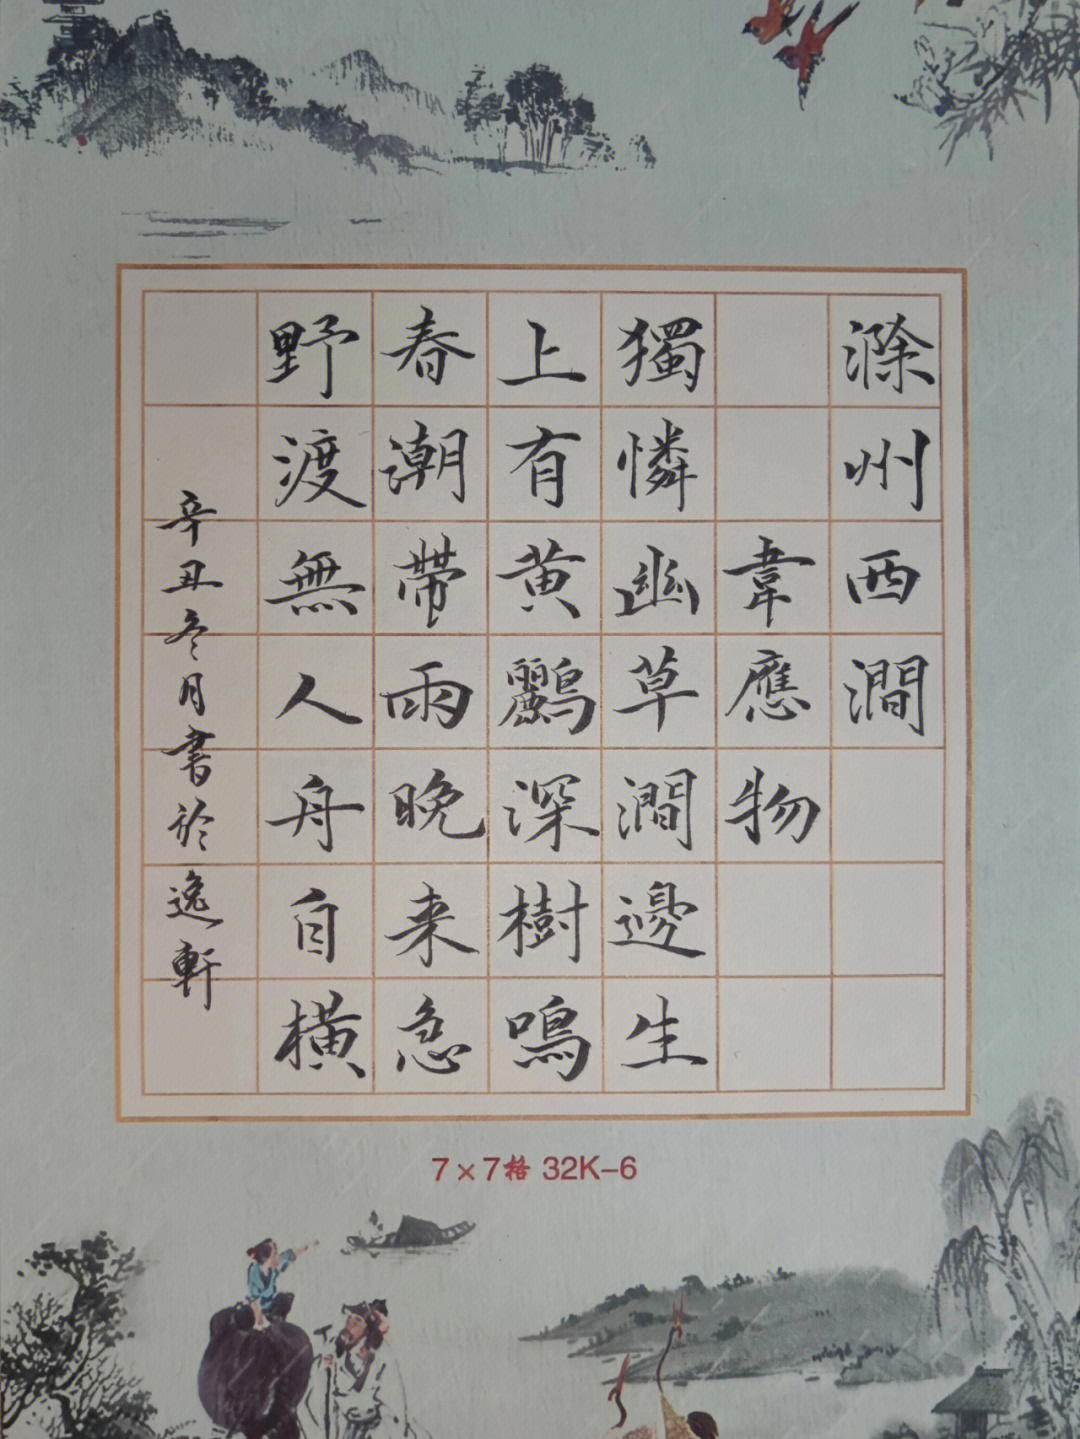 滁州西澗
韋應物
獨憐幽草澗邊生
上有黄鸝深樹鳴
春潮帶雨晚来急
野渡無人舟自橫
辛丑冬月書於逸軒
7×7格 32K-6